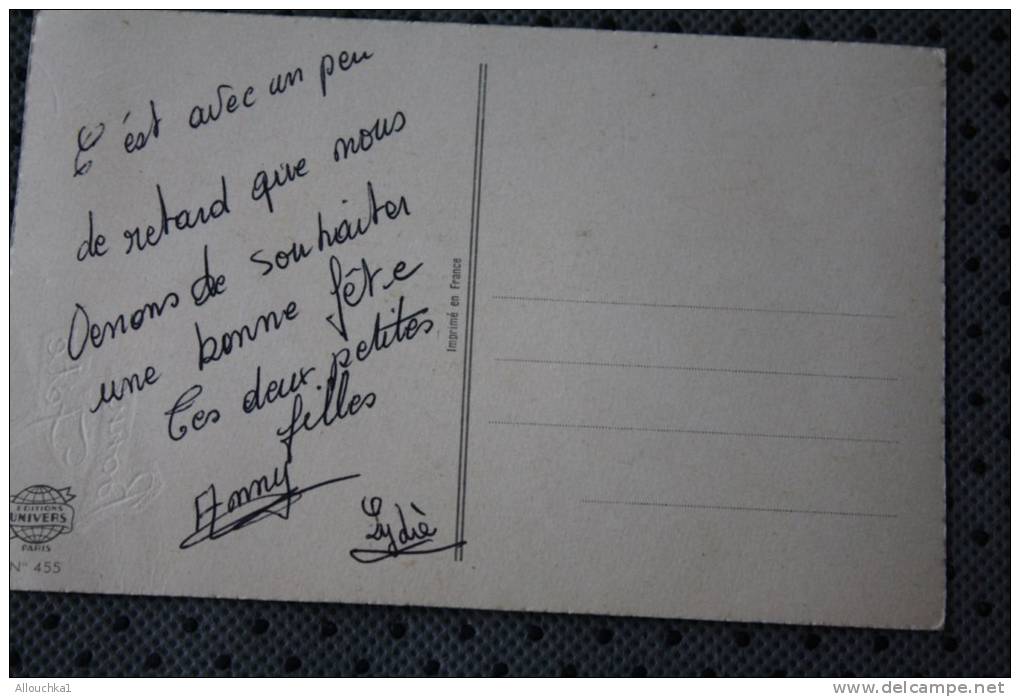 C'est avec un peu
de retard que nous
venons de souhaiter
une bonne fête
Tes deux petites
filles
Anny
Lydie
Imprimé en France
EDITIONS
UNIVERS
PARIS
N° 455
Allouchka1
www.delcampe.net